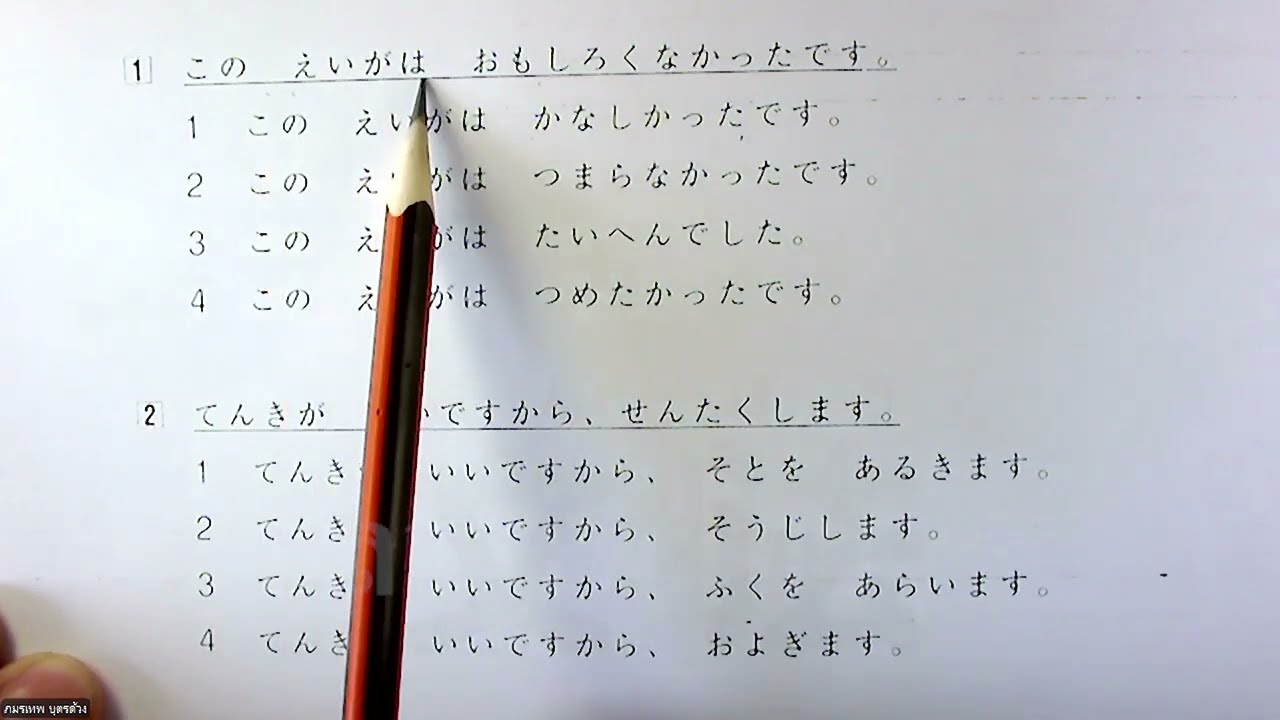 1 この えいがは おもしろくなかったです。
1 この えいがは かなしかったです。
2 この えがは つまらなかったです。
3 この えがは たいへんでした。
4 この えがは つめたかったです。
2 てんきが いですから、せんたくします。
1 てんき いいですから、 そとを あるきます。
2 てんき いいですから、 そうじします。
3 てんき いいですから、 ふくを あらいます。
4 てんき いいですから、 およぎます。
ภมรเทพ บุตรด้วง